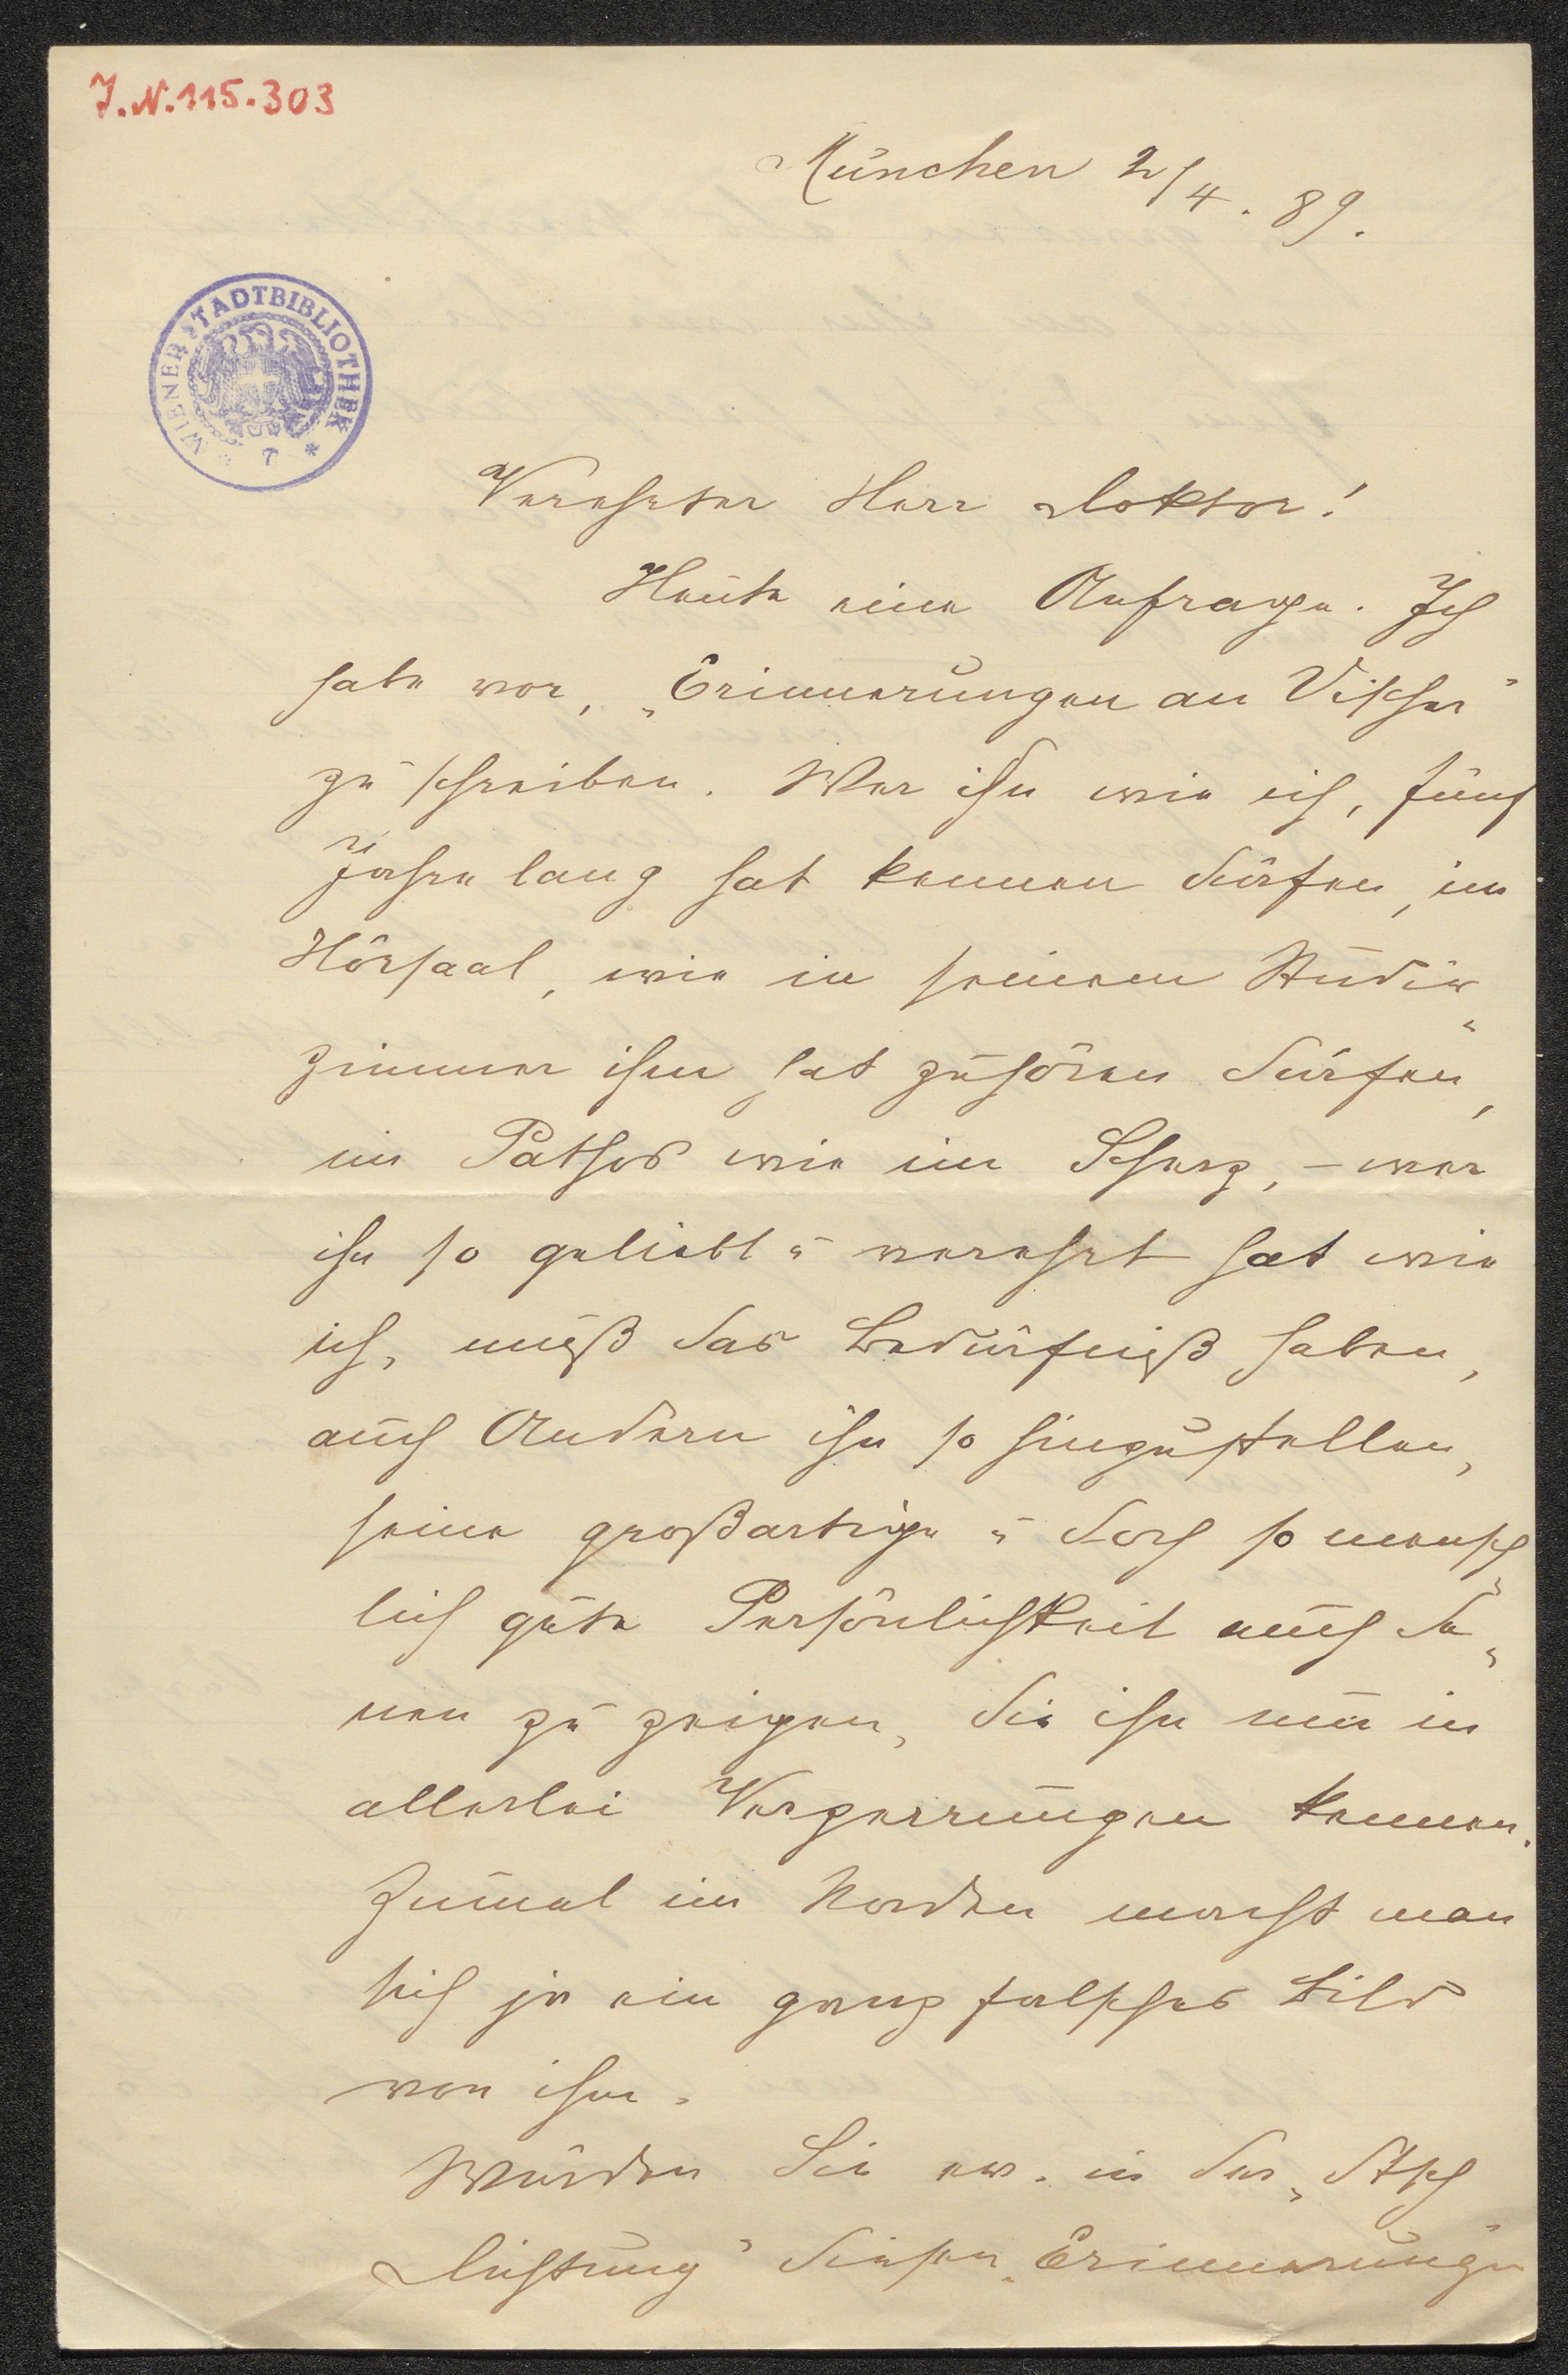 J.N.115.303
München 2/4. 89.
WIENER STADTBIBLIOTHEK
Verehrter Herr Doktor!
Heute eine Anfrage. Ich
habe vor, „Erinnerungen an Vischer"
zu schreiben. Wer ihn wie ich, fünf
Jahre lang hat kennen dürfen, im
Hörsaal, wie in seinem Studir„
zimmer ihm hat zuhören dürfen,
im Pathos wie im Scherz, – wer
ihn so geliebt u verehrt hat wie
ich, muß das Bedürfniß haben,
auch Andern ihn so hinzustellen,
seine großartige u doch so mensch„
lich gute Persönlichkeit auch de„
nen zu zeigen, die ihn nur in
allerlei Verzerrungen kennen.
Zumal im Norden macht man
sich ja ein ganz falsches Bild
von ihm.
Würden Sie ev. in der „Dtsch
Dichtung" diesen „Erinnerungen